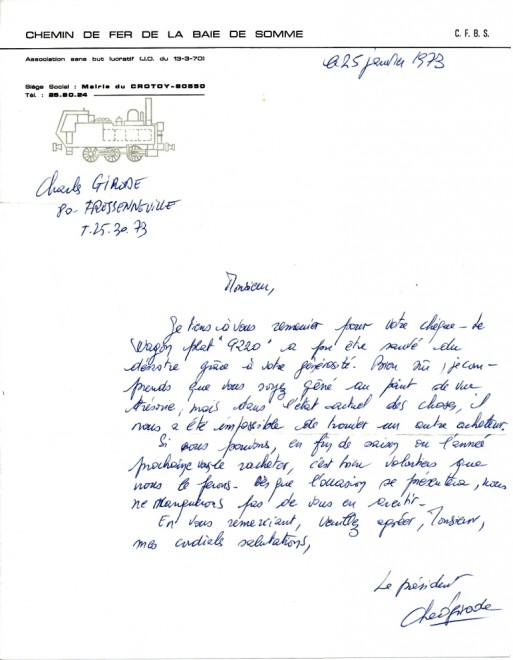 CHEMIN DE FER DE LA BAIE DE SOMME
C. F. B. S.
Association sans but lucratif (J.O. du 13-3-70)
Siège Social : Mairie du CROTOY-80550
Tél. : 25.80.24
le 25 janvier 1973
Charles GIRODE
80- FRESSENNEVILLE
T. 25.30.73
Monsieur,
Je tiens à vous remercier pour votre chèque - Le
Wagon plat "9220" a pu être sauvé du
désastre grâce à votre générosité. Bien sûr, je com-
prends que vous soyez gêné au point de vue
trésorie, mais dans l'état actuel des choses, il
nous a été impossible de trouver un autre acheteur.
Si nous pouvions, en fin de saison ou l'année
prochaine vous le racheter, c'est bien volontiers que
nous le ferons - Dès que l'occasion se présentera, nous
ne manquerons pas de vous en avertir -
En vous remerciant, veuillez agréer, Monsieur,
mes cordiales salutations,
Le président